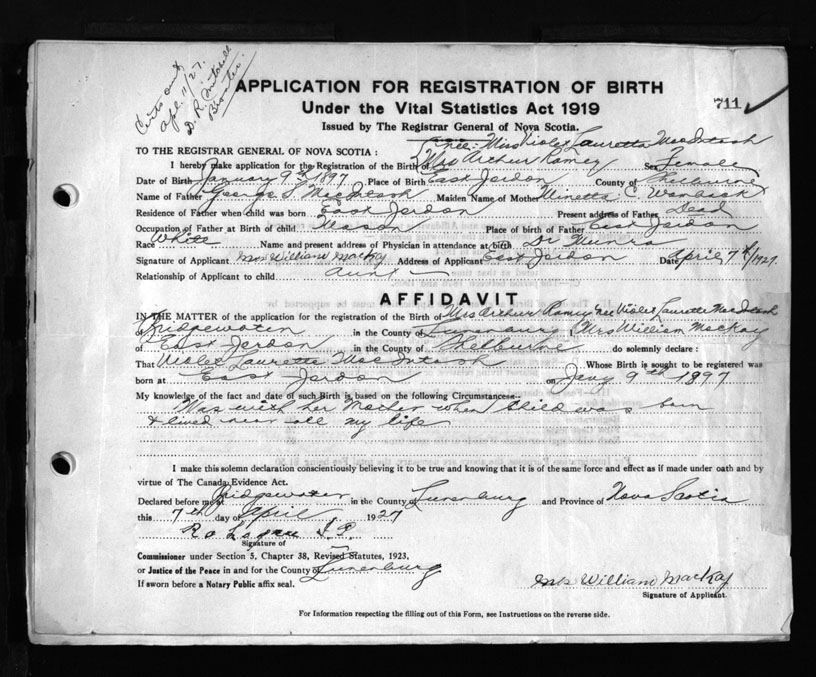 Certs out
Apl. 11/27.
D. R. Mitchell
APPLICATION FOR REGISTRATION OF BIRTH
711
Under the Vital Statistics Act 1919
Issued by The Registrar General of Nova Scotia.
nee: Miss Violet Lauretta MacIntosh
TO THE REGISTRAR GENERAL OF NOVA SCOTIA :
I hereby make application for the Registration of the Birth of Mrs Arthur Ramey Sex Female
Date of Birth January 9th 1897 Place of Birth East Jordon County of Shelburne
Name of Father George S MacIntosh Maiden Name of Mother Minetta C.
Residence of Father when child was born East Jordon Present address of Father Dead
Occupation of Father at Birth of child Mason Place of birth of Father East Jordon
Race White Name and present address of Physician in attendance at birth Dr Munro
Signature of Applicant Mrs William MacKay Address of Applicant East Jordon Date April 7th/1927.
Relationship of Applicant to child aunt
AFFIDAVIT
IN THE MATTER of the application for the registration of the Birth of Mrs Arthur Ramey nee Violet Lauretta MacIntosh
of Bridgewater in the County of Lunenburg I Mrs William MacKay
of East Jordon in the County of Shelburne do solemnly declare :
That Violet Lauretta MacIntosh Whose Birth is sought to be registered was
born at East Jordon on Jany 9th 1897
My knowledge of the fact and date of such Birth is based on the following Circumstances--
Was with her Mother when Child was born
& lived near all my life
I make this solemn declaration conscientiously believing it to be true and knowing that it is of the same force and effect as if made under oath and by
virtue of The Canada Evidence Act.
Declared before me at Bridgewater in the County of Lunenburg and Province of Nova Scotia
this 7th day of April 1927
R O Logan J.P.
Signature of
Commissioner under Section 5, Chapter 38, Revised Statutes, 1923,
or Justice of the Peace in and for the County of Lunenburg
If sworn before a Notary Public affix seal.
Mrs William MacKay
Signature of Applicant.
For Information respecting the filling out of this Form, see Instructions on the reverse side.